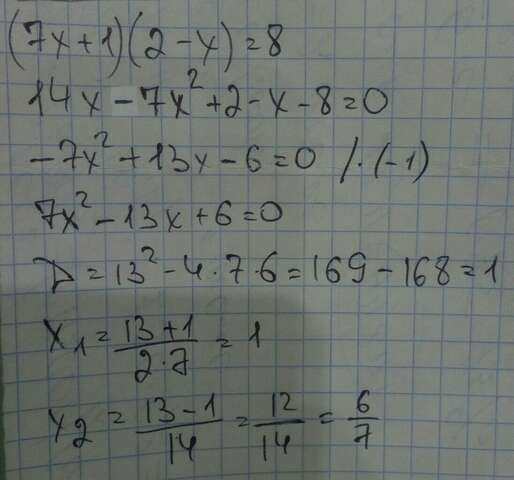 (7x+1)(2-x)=8
14x-7x²+2-x-8=0
-7x²+13x-6=0 /·(-1)
7x²-13x+6=0
D=13²-4·7·6=169-168=1
x₁=\frac{13+1}{2·7}=1
x₂=\frac{13-1}{14}=\frac{12}{14}=\frac{6}{7}